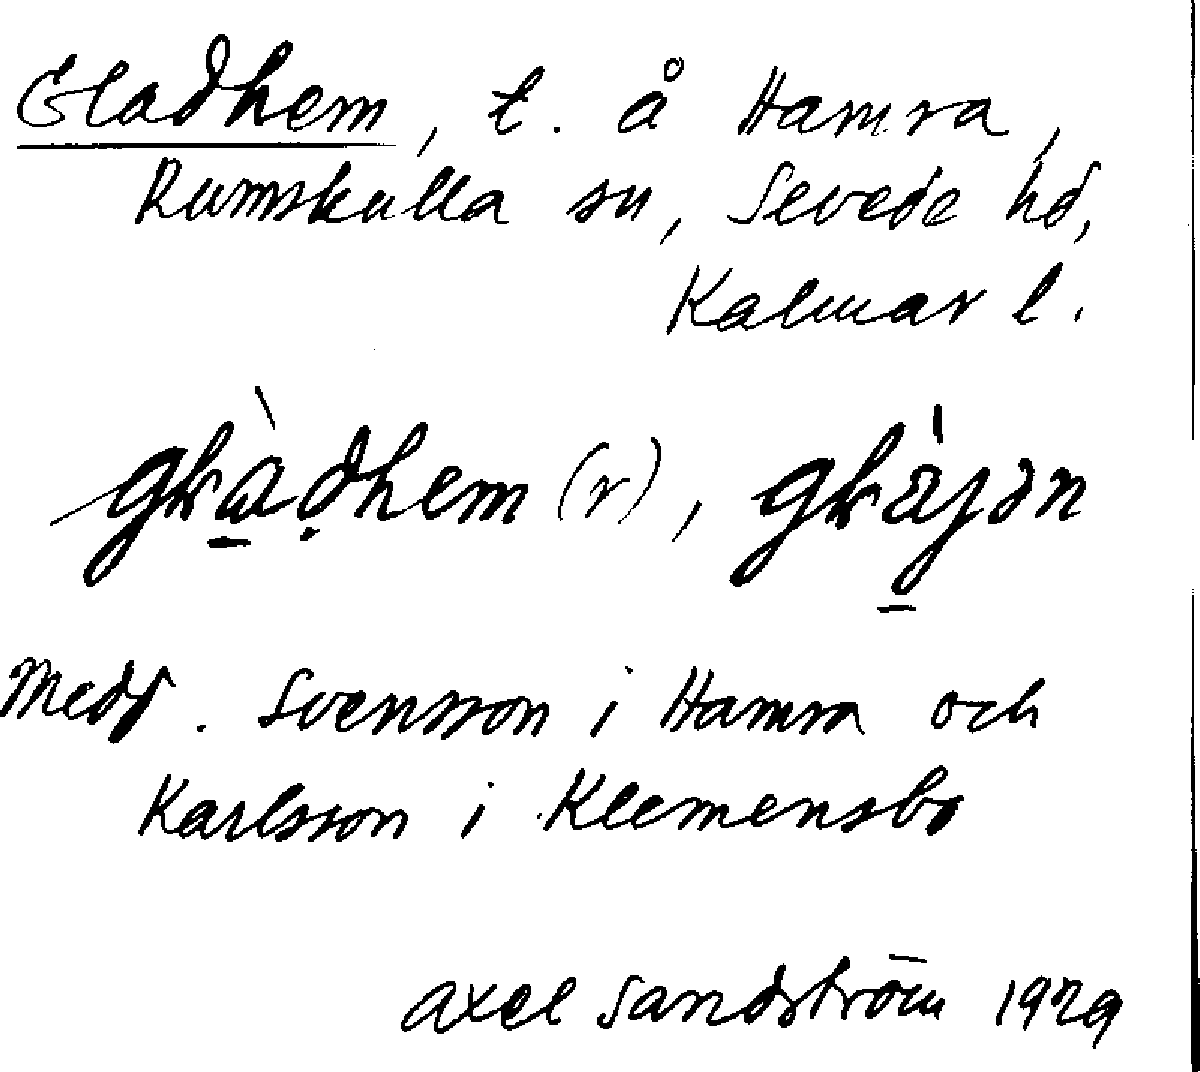 Gladhem, t. å Hamra,
Rumskulla sn, Sevede hd,
Kalmar l.
(r),
Medd. Svensson i Hamra och
Karlsson i Klemensbo
Axel Sandström 1929